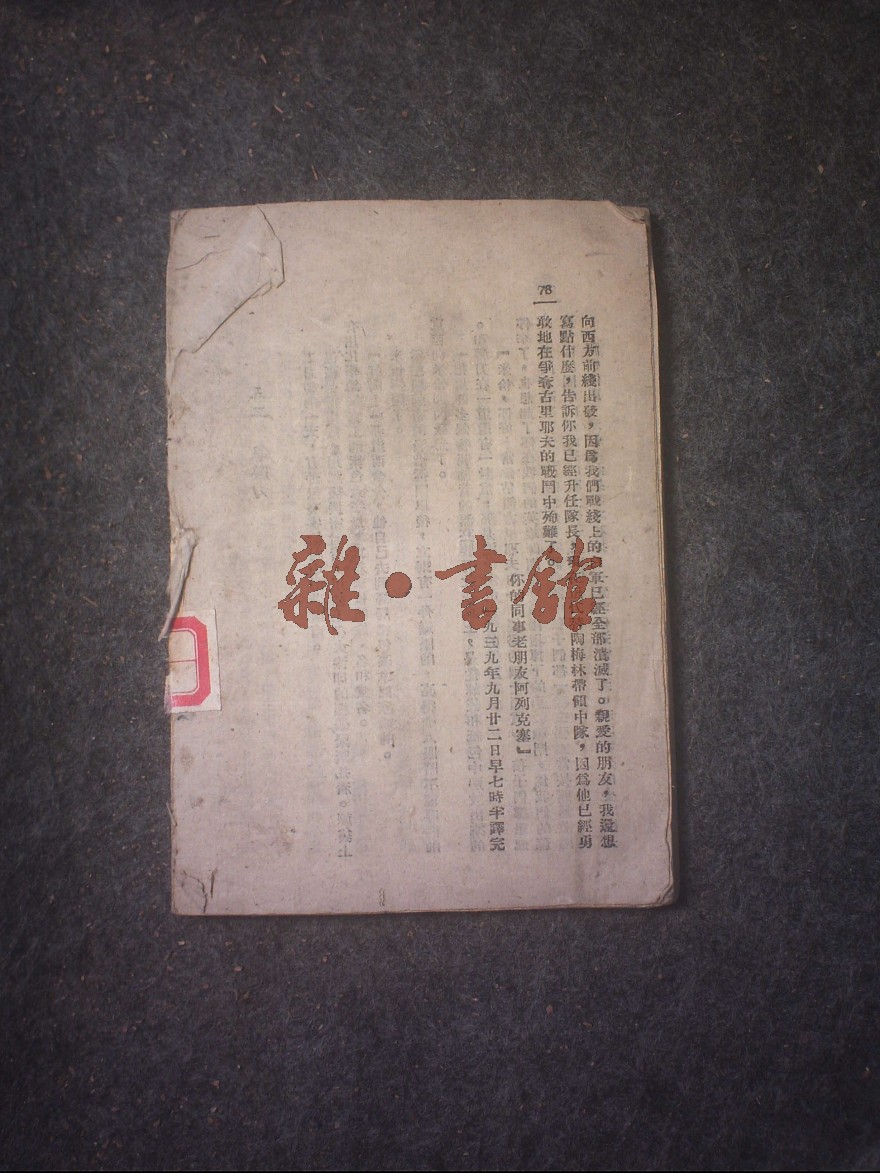 78
向西方前綫出發，因爲我們戰綫上的 軍已經全部潰滅了。親愛的朋友，我還想
寫點什麽，告訴你我已經升任隊長， 陶梅林帶領中隊，因爲他已經勇
敢地在爭奪古里耶夫的戰鬥中殉難了。
你的同事老朋友阿列克塞』
九三九年九月廿二日早七時半譯完
雜·書館